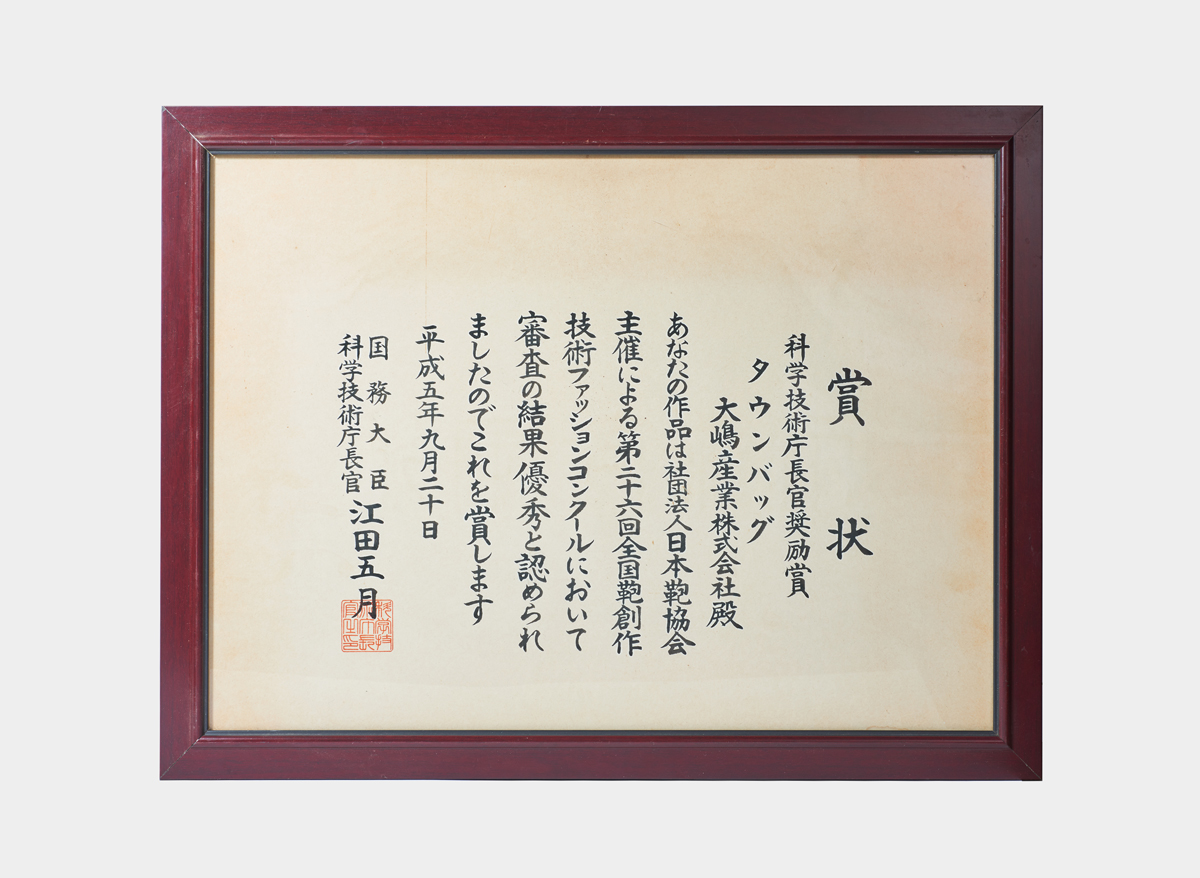 賞状
科学技術庁長官奨励賞
タウンバッグ
大嶋産業株式会社殿
あなたの作品は社団法人日本鞄協会
主催による第二十六回全国鞄創作
技術ファッションコンクールにおいて
審査の結果優秀と認められ
ましたのでこれを賞します
平成五年九月二十日
国務大臣
科学技術庁長官
江田五月